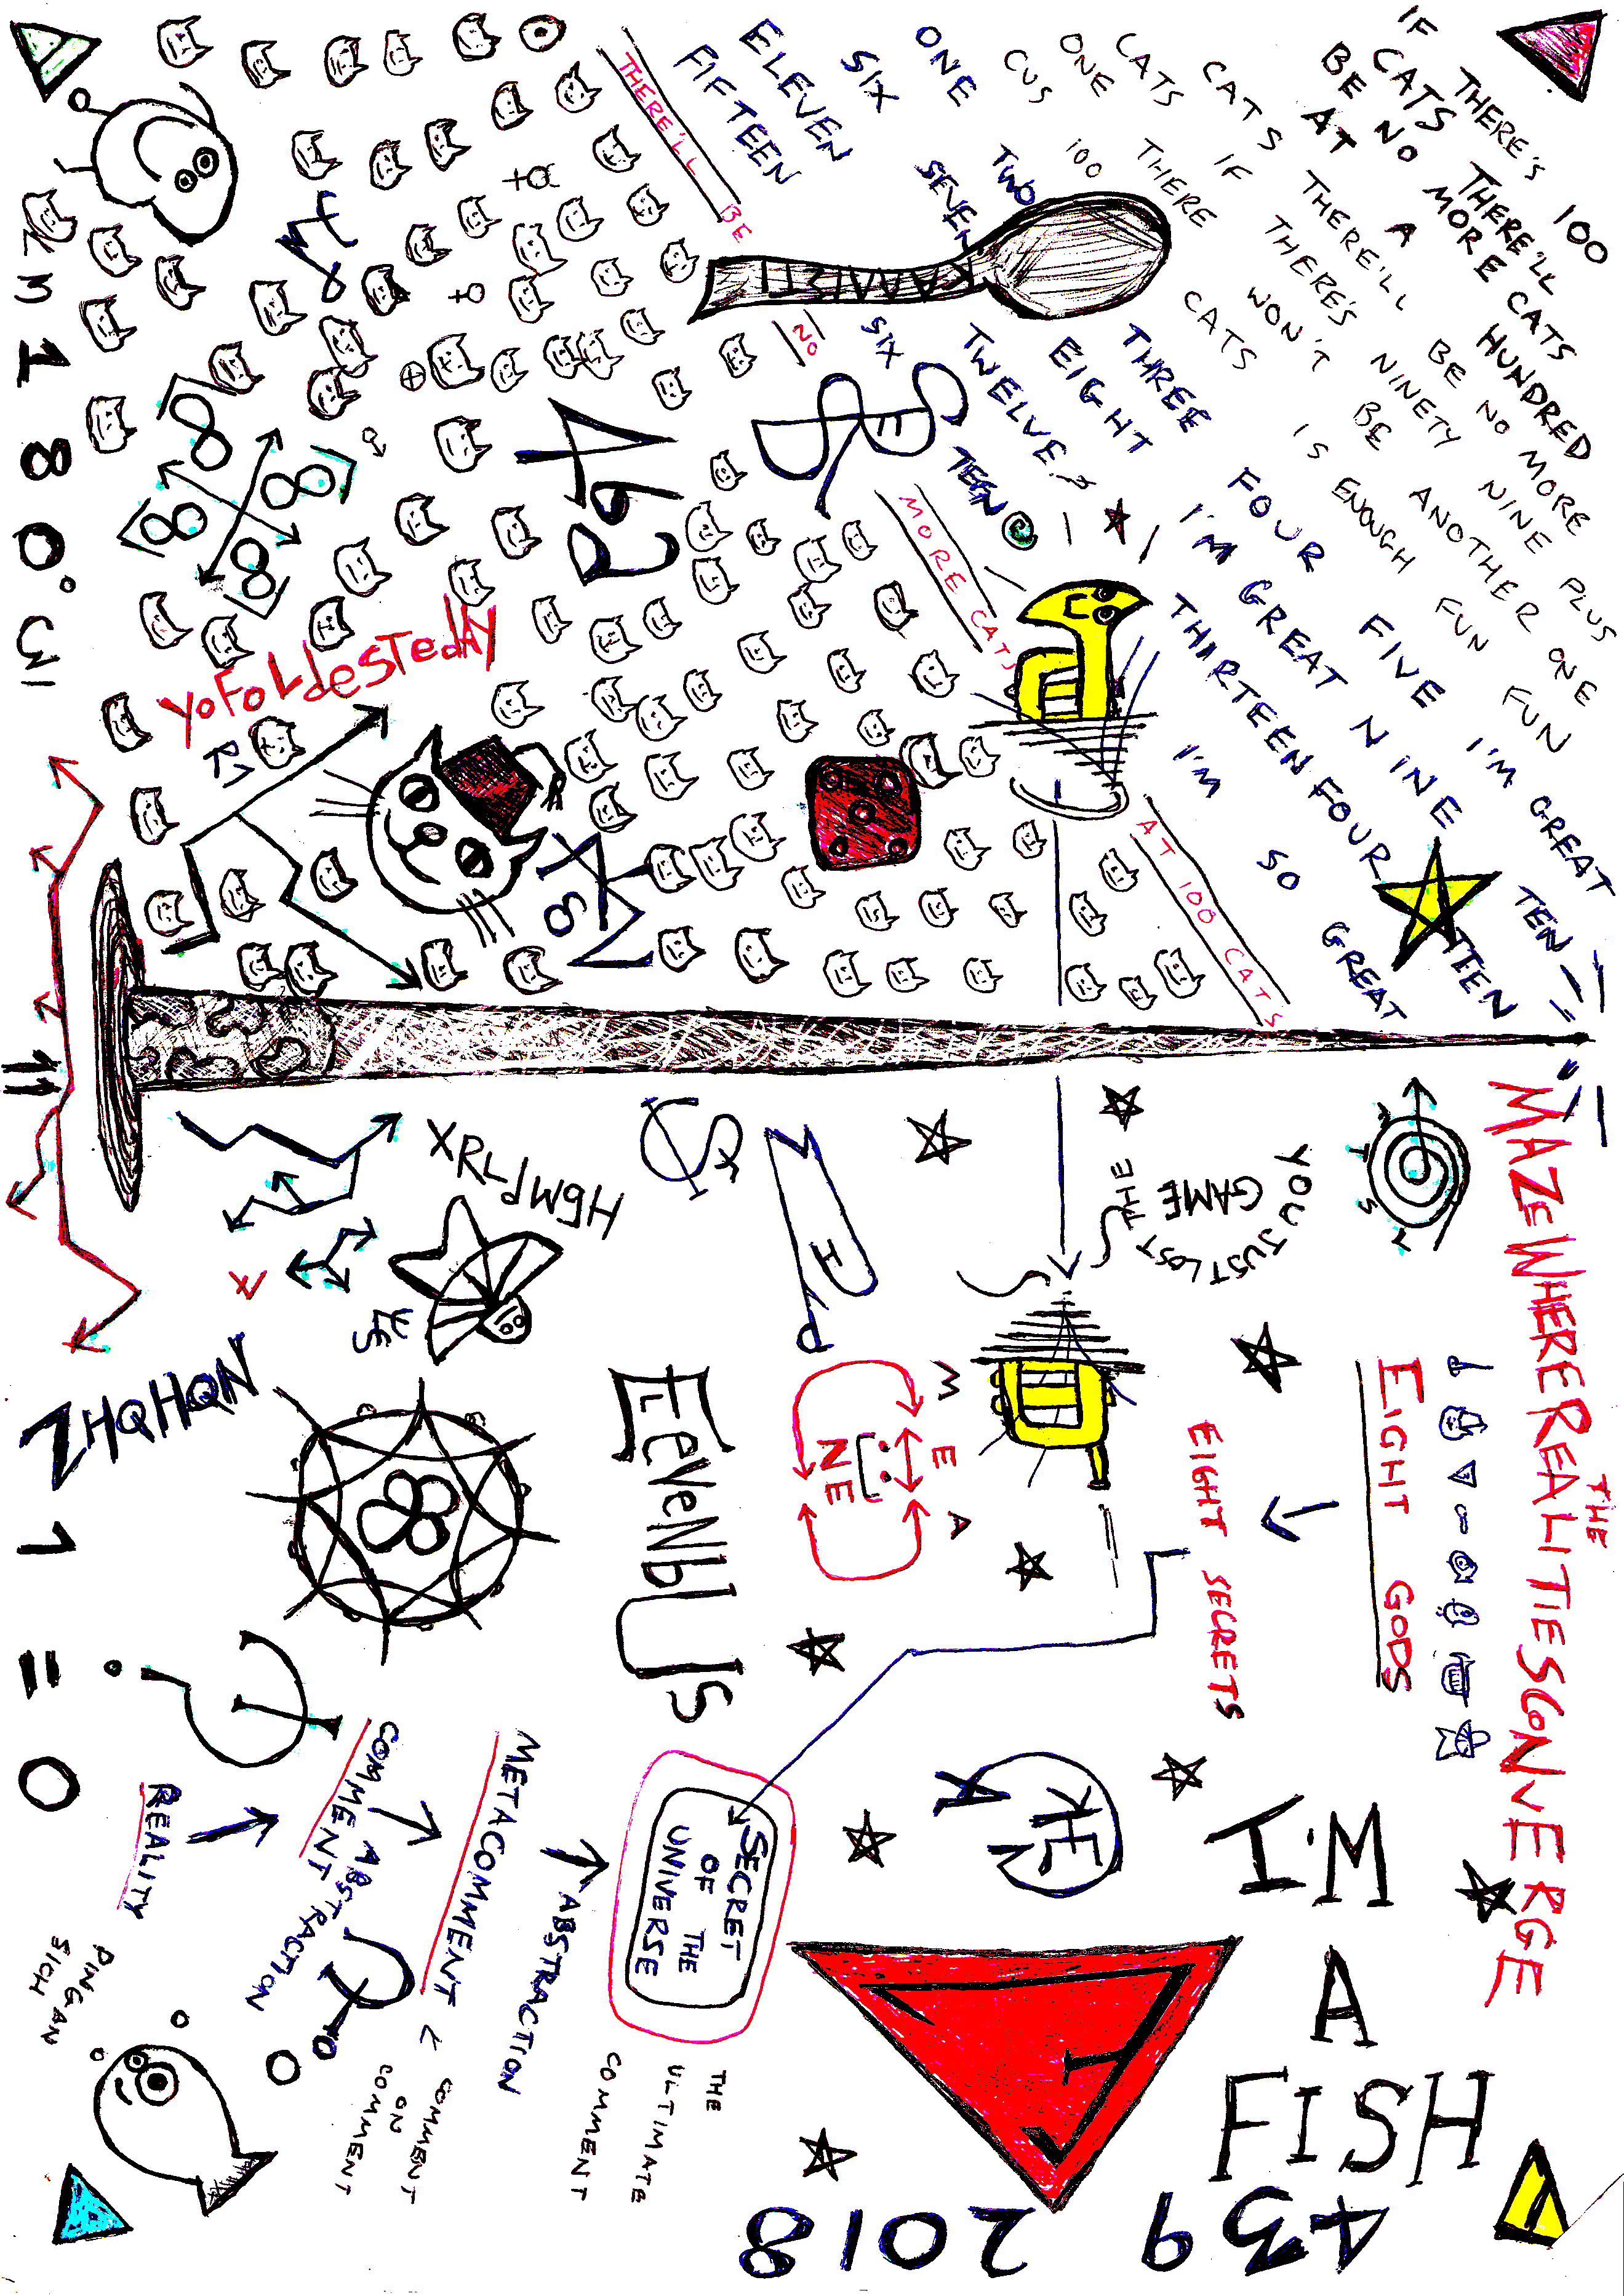 IF THERE'S 100
CATS THERE'LL
BE NO MORE CATS
AT A HUNDRED
CATS IF THERE'LL BE NO MORE
CATS IF THERE'S NINETY NINE PLUS
ONE THERE WON'T BE ANOTHER ONE
CUS 100 CATS IS ENOUGH FUN FUN
ONE TWO THREE FOUR FIVE I'M GREAT
SIX SEVEN EIGHT I'M GREAT NINE TEN
ELEVEN TWELVE THIRTEEN FOUR TEEN
FIFTEEN SIX TEEN I'M SO GREAT
THERE'LL BE NO MORE CATS AT 100 CATS
KAMIBTI
YOFOLDESTEDLY
"MAZE WHERE THE REALITIES CONVERGE
EIGHT GODS
EIGHT SECRETS
YOU JUST LOST THE GAME
HGMPJRX
YES
ZHQHQN
ELEVENBUS
ME A
NE
SECRET
OF THE
UNIVERSE
THE
ULTIMATE
COMMENT
ABSTRACTION
METACOMMENT < COMMENT
ON
COMMENT
ABSTRACTION
COMMENT
REALITY
PINGAN
SICH
I'M
A
FISH
439 2018
11